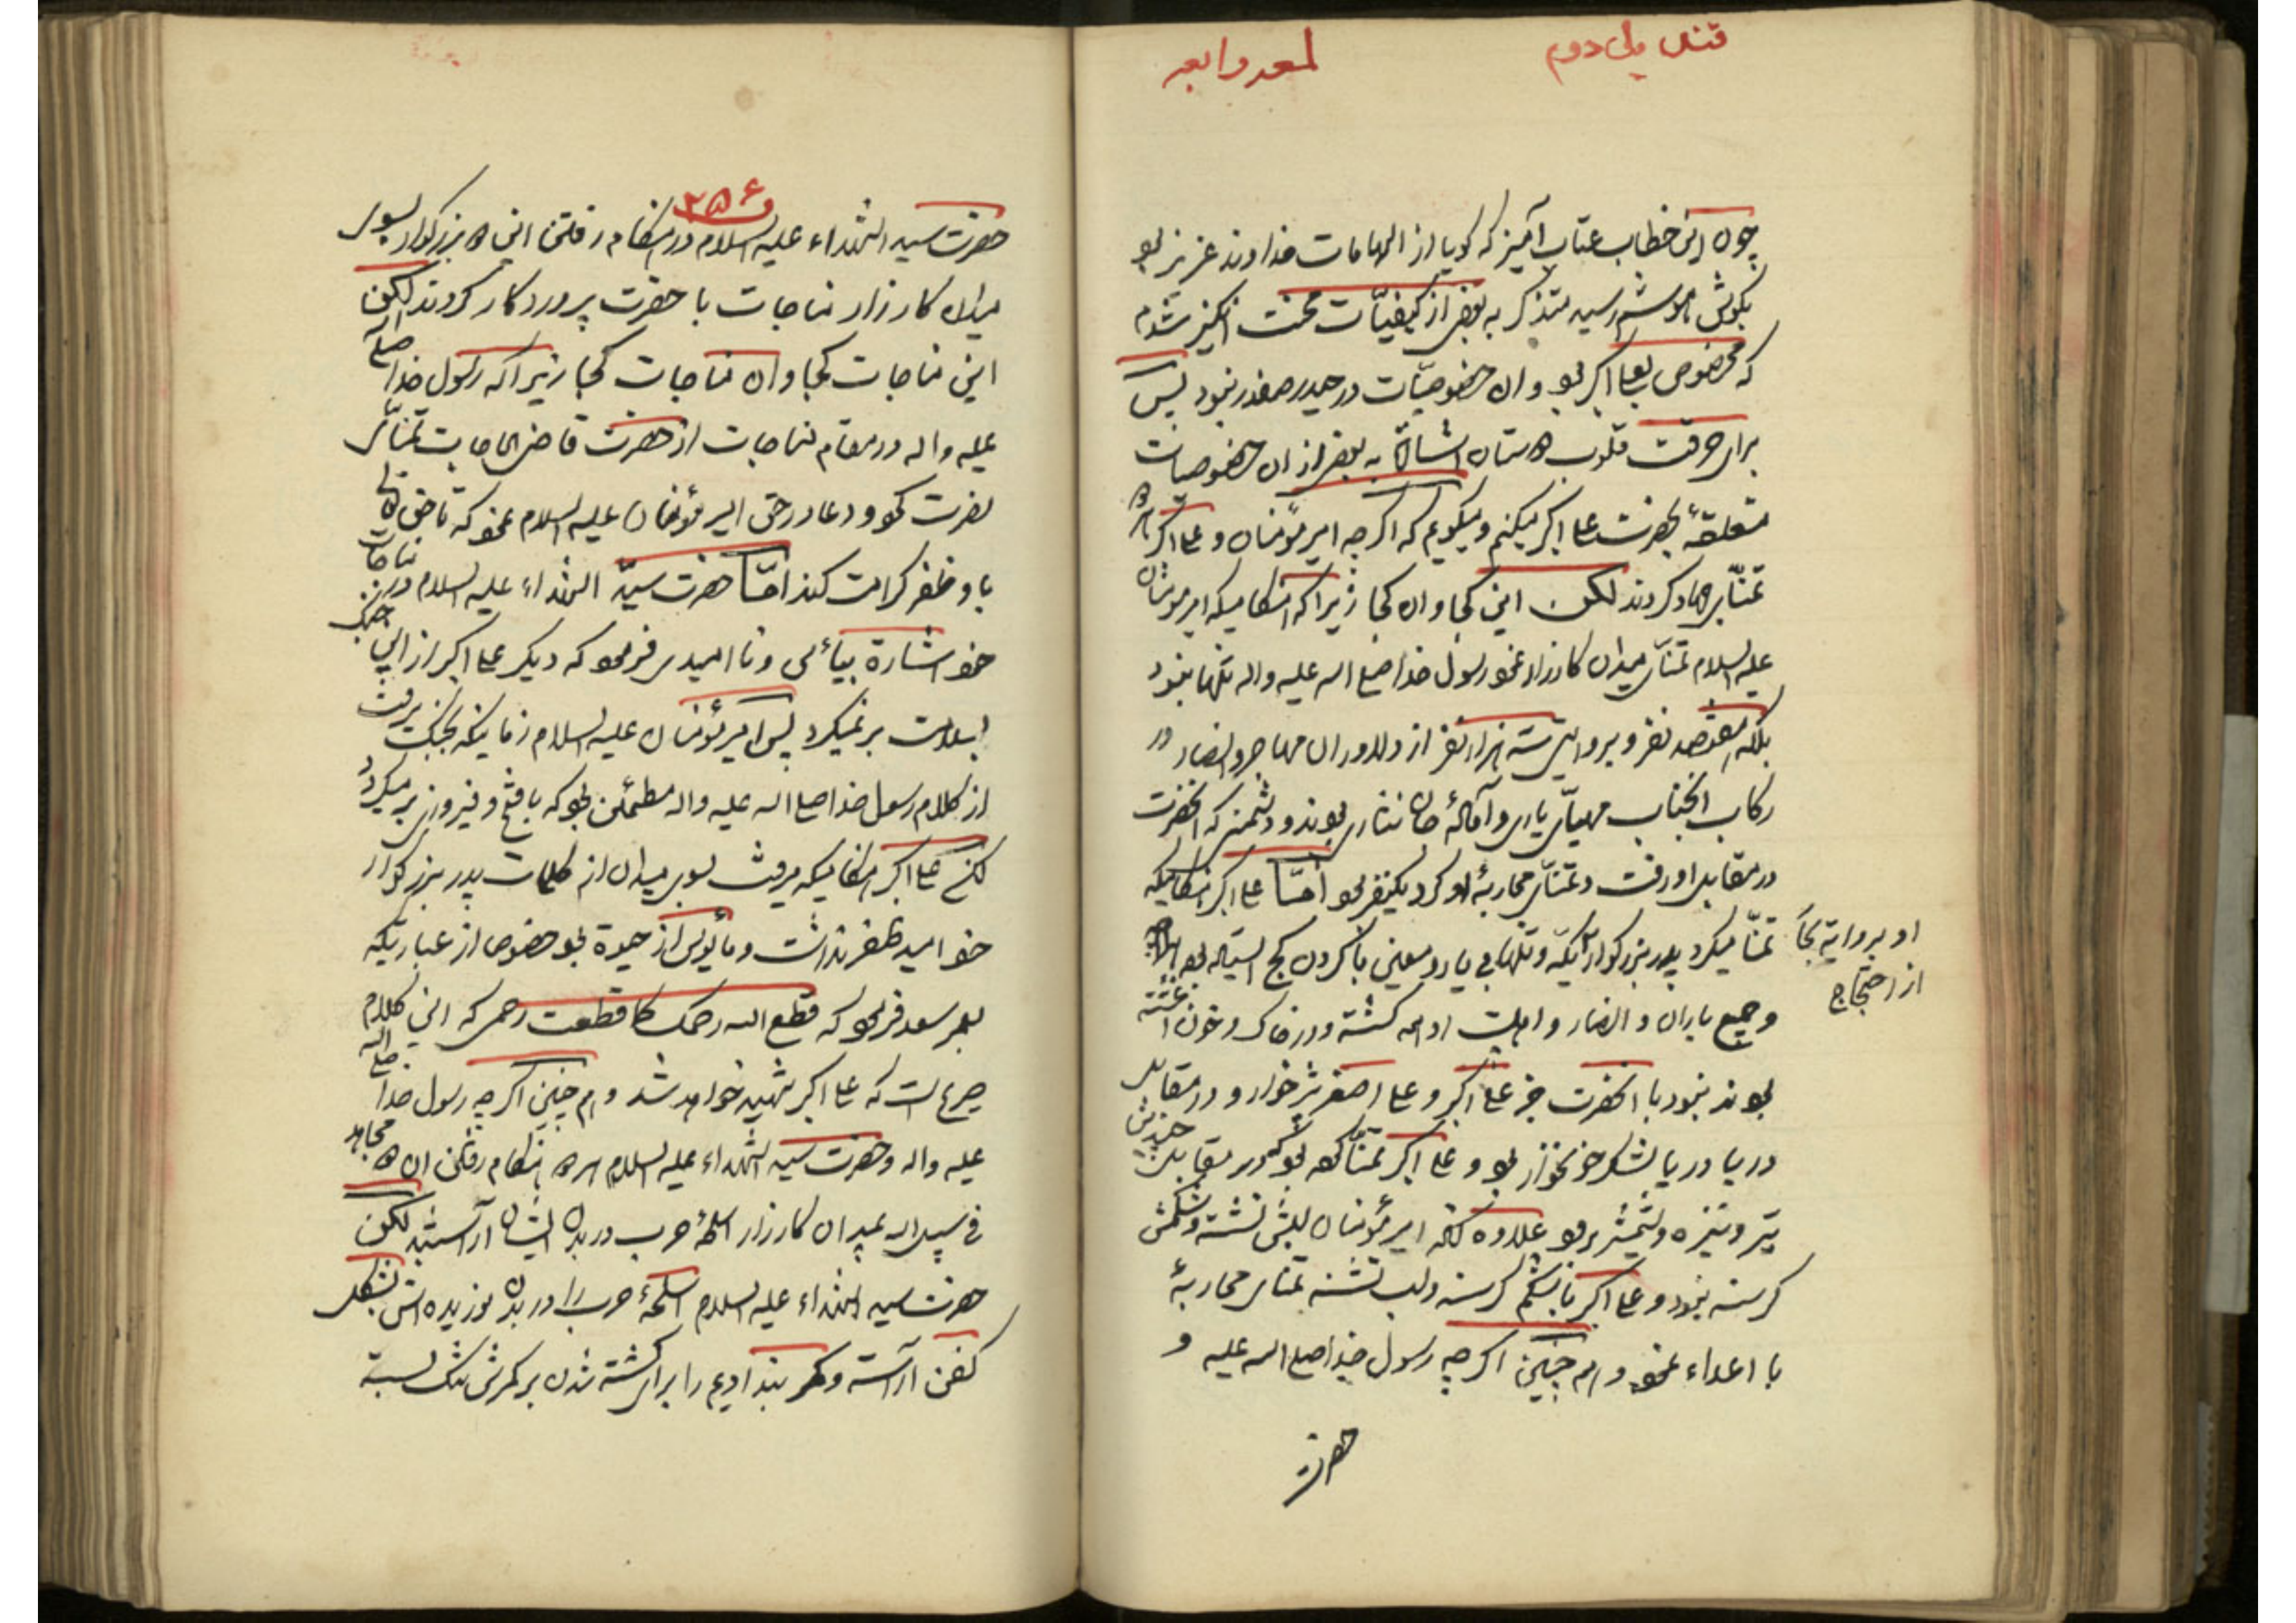 لمعه رابعه
چون این خطاب عتاب آمیز که کویا از الهامات خداوند عزیز بود
بکوش هوشم رسید متذکر به بعضی از کیفیّات محنت انگیز شدم
که مخصوص بعلی اکبر بود و ان خصوصیّات در حیدر صفدر نبود پس
برای حرقت قلوب دوستان اشارة به بعضی از ان خصوصیات
متعلقهٔ بحضرت علی اکبر میکنم و میکویم که اکر چه امیر مؤمنان و علی اکبر هر دو
تمنّای جهاد کردند لکن این کجا و ان کجا زیرا که هنکامیکه امیر مؤمنان
علیه السلام تمنّای میدان کارزار نمود رسول خدا صلی الله علیه واله تنها نبود
بلکه هفتصد نفر و بروایتی سه هزار نفر از دلاوران مهاجر و انصار در
رکاب انجناب مهیّای یاری و آمادهٔ جان نثاری بودند و دشمنی که انحضرت
در مقابل او رفت و تمنّای محاربهٔ او کرد یکنفر بود امّا علی اکبر هنکامیکه
تمنّا میکرد پدر بزرکوارش یکّه و تنها بی یار و معین با کردن کج ایستاده بود
او بروایة
از احتجاج
و جمیع یاران و انصار و اهلبیت او همه کشته و در خاک و خون اغشته
بودند نبود با انحضرت جز علی اکبر و علی اصغر شیر خوار و در مقابل
دریا دریا لشکر خونخوار بود و علی اکبر تمنّا که بود در مقابل چندین
تیر و نیزه و شمشیر برود علاوه انکه امیر مؤمنان لبش تشنه و شکمش
کرسنه نبود و علی اکبر با شکم کرسنه ولب تشنه تمنای محاربهٔ
با اعداء نمود و هم چنین اکر چه رسول خدا صلی الله علیه و
حضرت
۲۵۶
حضرت سید الشهداء علیه السلام در هنکام رفتن این دو بزرکوار بسوی
میدان کارزار مناجات با حضرت پروردکار کردند لکن
این مناجات کجا و ان مناجات کجا زیرا که رسول خدا صلی الله
علیه واله در مقام مناجات از حضرت قاضی الحاجات تمنّای
نصرت نمود و دعا در حق امیر مؤمنان علیه السلام نمود که تا حق تعالی
باو ظفر کرامت کند امّا حضرت سیّد الشهداء علیه السلام در مناجات
خود اشارة بیأس و نا امیدی فرمود که دیکر علی اکبر از این جنک
بسلامت بر نمیکردد پس امیر مؤمنان علیه السلام زمانیکه بجنک میرفت
از کلام رسول خدا صلی الله علیه واله مطمئن بود که با فتح و فیروزی بر میکردد
لکن علی اکبر هنکامیکه میرفت بسوی میدان از کلمات پدر بزرکوار
خود امید ظفر نداشت و مأیوس از حیوة بود خصوص از عباراتیکه
بعمر سعد فرمود که قطع الله رحمک کما قطعت رحمی که این کلام
صریح است که علی اکبر شهید خواهد شد و هم چنین اکر چه رسول خدا صلی الله
علیه واله و حضرت سید الشهداء علیه السلام هر دو هنکام رفتن ان دو مجاهد
فی سبیل الله بمیدان کارزار اسلحهٔ حرب در بدن ایشان آراستند لکن
حضرت سید الشهداء علیه السلام اسلحهٔ حرب را در بدن نوردیده اش بشکل
کفن آراسته و کمر بند ادیم را برای کشته شدن بر کمرش تنک بسته